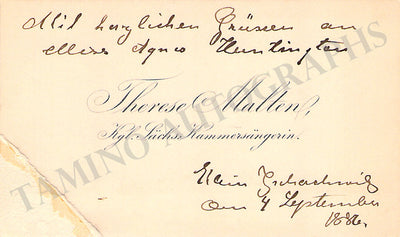 Mit herzlichen Grüssen an
Miss Agnes Huntington
Therese Malten,
Kgl. Sächs. Kammersängerin.
Klein Zschachwitz
am 4 September
1886.
TAMINO AUTOGRAPHS